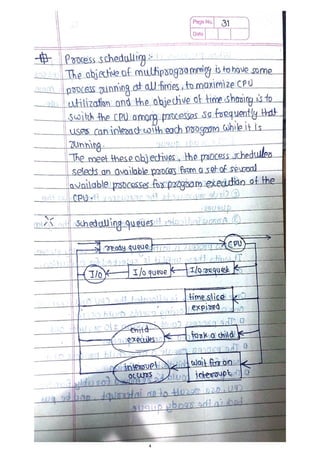 Page No. 31
Date
Process schedulling :-
The objective of multiprogramming is to have some
process running at all times, to maximize CPU
utilization and the objective of time sharing is to
switch the CPU among processes so frequently that
user can interact with each program while it is
running.
The meet these objectives, the process scheduller
selects an available process from a set of several
available processes for program execution of the
CPU.
Schedulling queues
ready queue CPU
I/O I/O queue I/O request
time slice
expired
child
executes fork a child
interrupt
occurs wait for an
interrupt
4